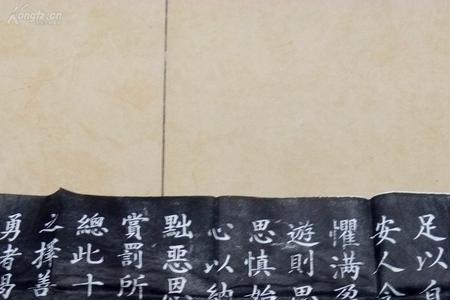 Kongfz.cn
足以自
安人念
懼滿盈
遊則思
思慎始
心以納
黜惡恩
賞罰所
總此十
之擇善
勇者